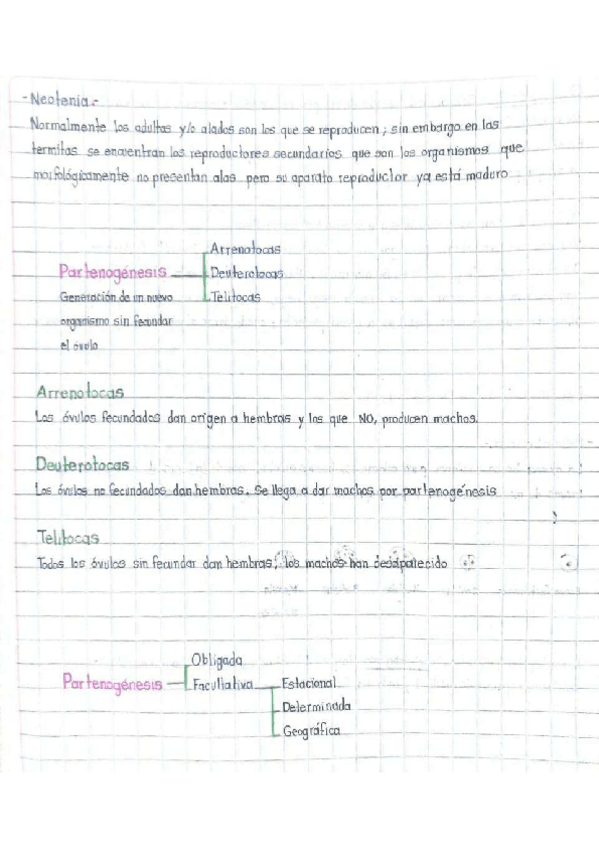 - Neotenia.-
Normalmente los adultos y/o alados son los que se reproducen; sin embargo en las
termitas se encuentran los reproductores secundarios que son los organismos que
morfológicamente no presentan alas pero su aparato reproductor ya está maduro
Arrenotocas
Partenogénesis
Deuterotocas
Generación de un nuevo
Telitocas
organismo sin fecundar
el óvulo
Arrenotocas
Los óvulos fecundados dan origen a hembras y los que NO, producen machos.
Deuterotocas
Los óvulos no fecundados dan hembras. Se llega a dar machos por partenogénesis
Telitocas
Todos los óvulos sin fecundar dan hembras; los machos han desaparecido
Obligada
Partenogénesis
Facultativa
Estacional
Determinada
Geográfica